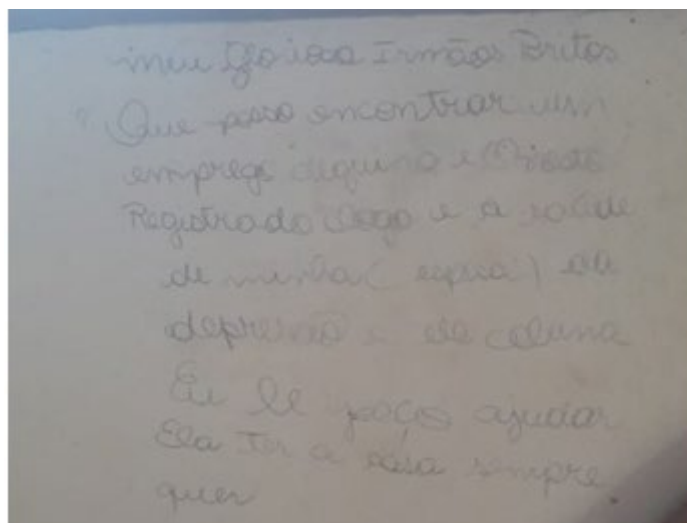 meu Irmãos Britos
Que posso encontrar um
emprego e
Registrado logo e a saúde
de minha (esposa) da
depressão e da coluna
Eu le peços ajudar
Ela Ter a casa sempre
quer